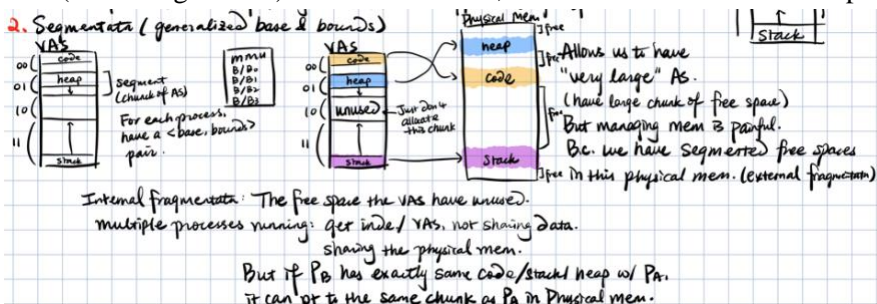 2. Segmentatn (generalized base & bounds)
VAS
00
code
01
heap
10
11
stack
segment
(chunk of AS)
For each process,
have a <base, bounds>
pair.
MMU
B/B0
B/B1
B/B2
B/B3
VAS
00
code
01
heap
10
unused
11
stack
Just don't
allocate
this chunk
Physical Mem
heap
code
Stack
free
free
free
free
Stack
Allows us to have
"very large" AS.
(have large chunk of free space)
But managing mem is painful.
B.c. we have segmented free spaces
in this physical mem. (external fragmentatn)
Internal fragmentatn: The free space the VAS have unused.
multiple processes running: get inde/ VAS, not sharing data.
sharing the physical mem.
But if PB has exactly same code/stack/ heap w/ PA.
it can pt to the same chunk as PA in Physical mem.